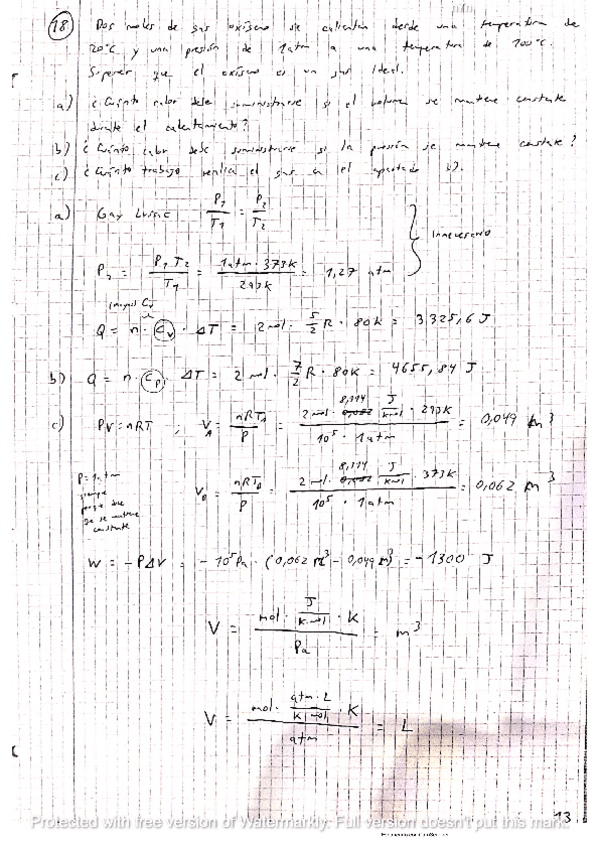 18) Dos moles de gas oxígeno se calientan desde una temperatura de
20°C y una presión de 1atm a una temperatura de 100°C.
Suponer que el oxígeno es un gas ideal.
a) ¿Cuánto calor debe suministrarse si el volumen se mantiene constante
durante el calentamiento?
b) ¿Cuánto calor debe suministrarse si la presión se mantiene constante?
c) ¿Cuánto trabajo realiza el gas en el apartado b).
a) Gay Lussac P1/T1 = P2/T2
P2 = P1 T2/T1 = 1atm · 373K/293K = 1,27 atm } innecesario
Cv
Q = n · Cv · ΔT = 2mol · 5/2 R · 80K = 3325,6 J
b) Q = n · Cp · ΔT = 2 mol · 7/2 R · 80K = 4655,84 J
c) PV = nRT ; VA = nRTA/P = 2 mol · 8,314 J/K·mol · 293K / 10^5 · 1atm = 0,049 m^3
P = 1atm
siempre
porque
se mantiene
constante
VB = nRTB/P = 2 mol · 8,314 J/K·mol · 373K / 10^5 · 1atm = 0,062 m^3
W = -PΔV = -10^5 Pa · (0,062 m^3 - 0,049 m^3) = -1300 J
V = mol · J/K·mol · K / Pa = m^3
V = mol · atm·L/K·mol · K / atm = L
13
Protected with free version of Watermarkly. Full version doesn't put this mark.